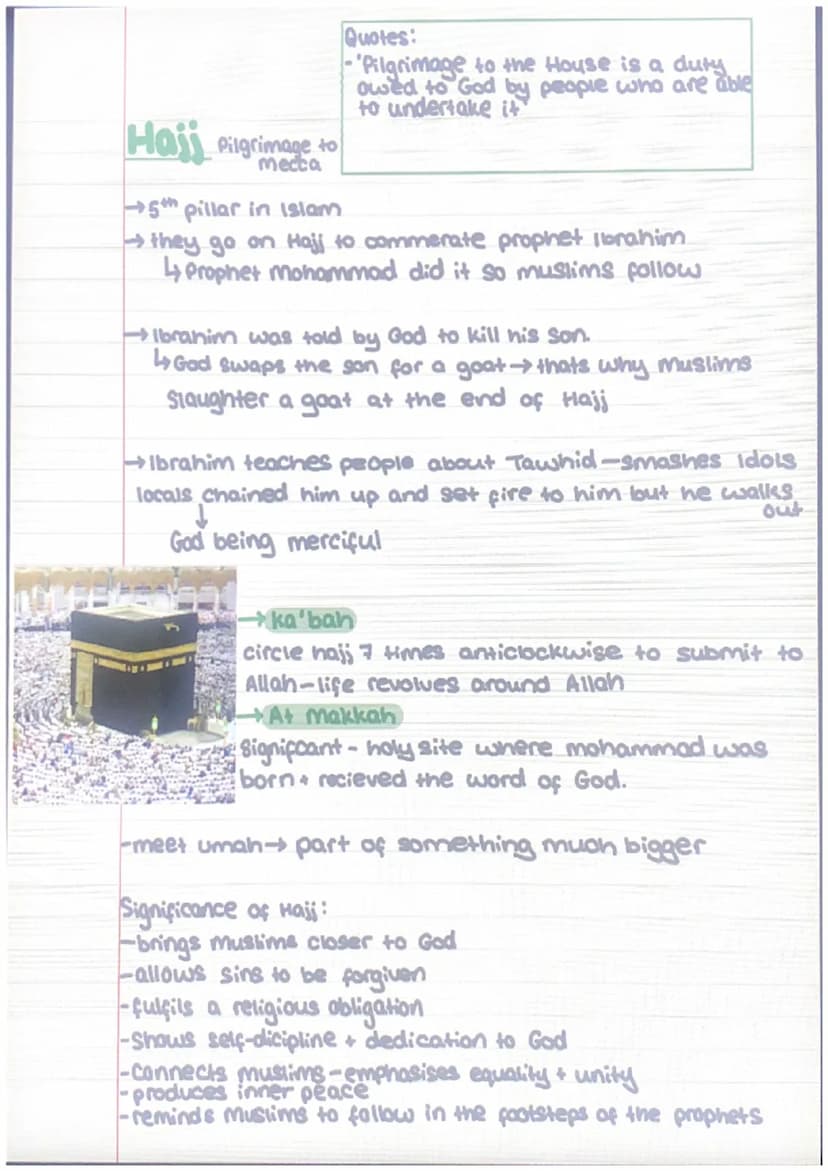 Quotes:
-'Pilgrimage to the House is a duty
owed to God by people who are able
to undertake it'
Hajj Pilgrimage to
mecca
→5th pillar in Islam
→ they go on Hajj to commerate prophet Ibrahim
↳Prophet Mohammad did it so muslims follow
→Ibrahim was told by God to kill his son.
↳God swaps the son for a goat→thats why muslims
slaughter a goat at the end of Hajj
→Ibrahim teaches people about Tawhid-smashes idols
locals chained him up and set fire to him but he walks
out
↓
God being merciful
→ka'bah
circle hajj 7 times anticlockwise to submit to
Allah-life revolves around Allah
→At makkah
Significant - holy site where mohammad was
born + recieved the word of God.
-meet umah→ part of something much bigger
Significance of Hajj:
-brings muslims closer to God
-allows sins to be forgiven
-fulfils a religious obligation
-Shows self-dicipline + dedication to God
-Connects muslims-emphasises equality + unity
-produces inner peace
-reminds muslims to follow in the footsteps of the prophets